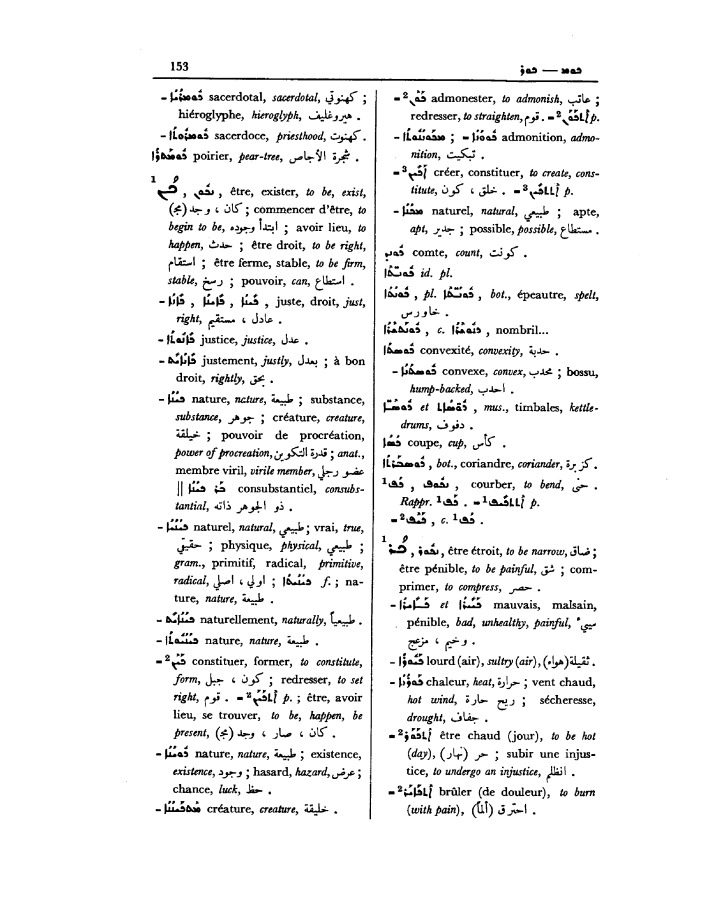 153 ܟܘܡܪ — ܟܘܪ
– ܟܘܡܪܝܐ sacerdotal, sacerdotal, كهنوتي ;
hiéroglyphe, hieroglyph, هيروغليف .
– ܟܘܡܪܘܬܐ sacerdoce, priesthood, كهنوت .
ܟܘܡܬܪܐ poirier, pear-tree, شجرة الأجاص .
1 ܟܢ , ܢܟܘܢ , être, exister, to be, exist,
كان ، وجد (مج) ; commencer d'être, to
begin to be, ابتدأ وجوده ; avoir lieu, to
happen, حدث ; être droit, to be right,
استقام ; être ferme, stable, to be firm,
stable, رسخ ; pouvoir, can, استطاع .
– ܟܐܢܐ , juste, droit, just,
right, عادل ، مستقيم .
– ܟܐܢܘܬܐ justice, justice, عدل .
– ܟܐܢܐܝܬ justement, justly, بعدل ; à bon
droit, rightly, بحق .
– ܟܝܢܐ nature, nature, طبيعة ; substance,
substance, جوهر ; créature, creature,
خليقة ; pouvoir de procréation,
power of procreation, قدرة التكوين ; anat.,
membre viril, virile member, عضو رجلي
|| ܒܪ ܟܝܢܐ consubstantiel, consubs-
tantial, ذو الجوهر ذاته .
– ܟܝܢܝܐ naturel, natural, طبيعي ; vrai, true,
حقيقي ; physique, physical, طبيعي ;
gram., primitif, radical, primitive,
radical, اولي ، اصلي ; f. ; na-
ture, nature, طبيعة .
– ܟܝܢܐܝܬ naturellement, naturally, طبيعياً .
– ܟܝܢܝܘܬܐ nature, nature, طبيعة .
– 2 ܟܘܢ constituer, former, to constitute,
form, كون ، جبل ; redresser, to set
right, قوم . – 2 ܐܬܟܘܢ p. ; être, avoir
lieu, se trouver, to be, happen, be
present, كان ، صار ، وجد (مج) .
– ܟܘܢܝܐ nature, nature, طبيعة ; existence,
existence, وجود ; hasard, hazard, عرض ;
chance, luck, حظ .
– créature, creature, خليقة .
– 2 ܟܘܢ admonester, to admonish, عاتب ;
redresser, to straighten, قوم . – 2 ܐܬܟܘܢ p.
– ; – admonition, admo-
nition, تبكيت .
– 3 ܐܟܝܢ créer, constituer, to create, cons-
titute, خلق ، كون . – 3 ܐܬܬܟܝܢ p.
– naturel, natural, طبيعي ; apte,
apt, جدير ; possible, possible, مستطاع .
comte, count, كونت .
id. pl.
ܟܘܢܬܐ , pl. , bot., épeautre, spelt,
خاورس .
, c. , nombril...
convexité, convexity, حدبة .
– convexe, convex, محدب ; bossu,
hump-backed, احدب .
et , mus., timbales, kettle-
drums, دفوف .
ܟܣܐ coupe, cup, كأس .
, bot., coriandre, coriander, كزبرة .
1 ܟܦ , ܢܟܘܦ , courber, to bend, حنى .
Rappr. 1 ܟܦ . – 1 p.
– 2 , c. 1 ܟܦ .
1 ܟܪ , ܢܟܘܪ , être étroit, to be narrow, ضاق ;
être pénible, to be painful, شق ; com-
primer, to compress, حصر .
– et mauvais, malsain,
pénible, bad, unhealthy, painful, سيئ
وخيم ، مزعج .
– lourd (air), sultry (air), ثقيلة (هواء) .
– chaleur, heat, حرارة ; vent chaud,
hot wind, ريح حارة ; sécheresse,
drought, جفاف .
– 2 être chaud (jour), to be hot
(day), حر (نهار) ; subir une injus-
tice, to undergo an injustice, انظلم .
– 2 brûler (de douleur), to burn
(with pain), احترق (ألماً) .